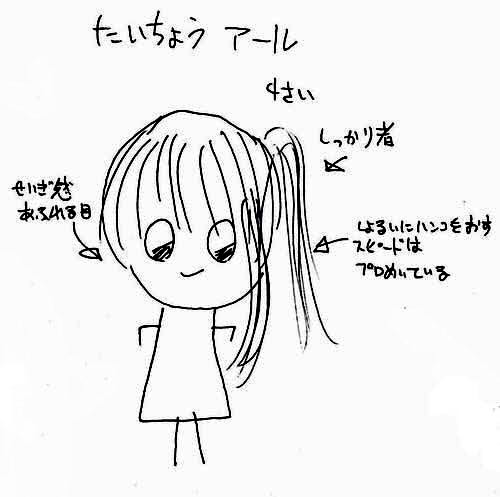 たいちょう アール
4さい
しっかり者
せいぎ感
あふれる目
しょるいにハンコをおす
スピードは
プロめいている